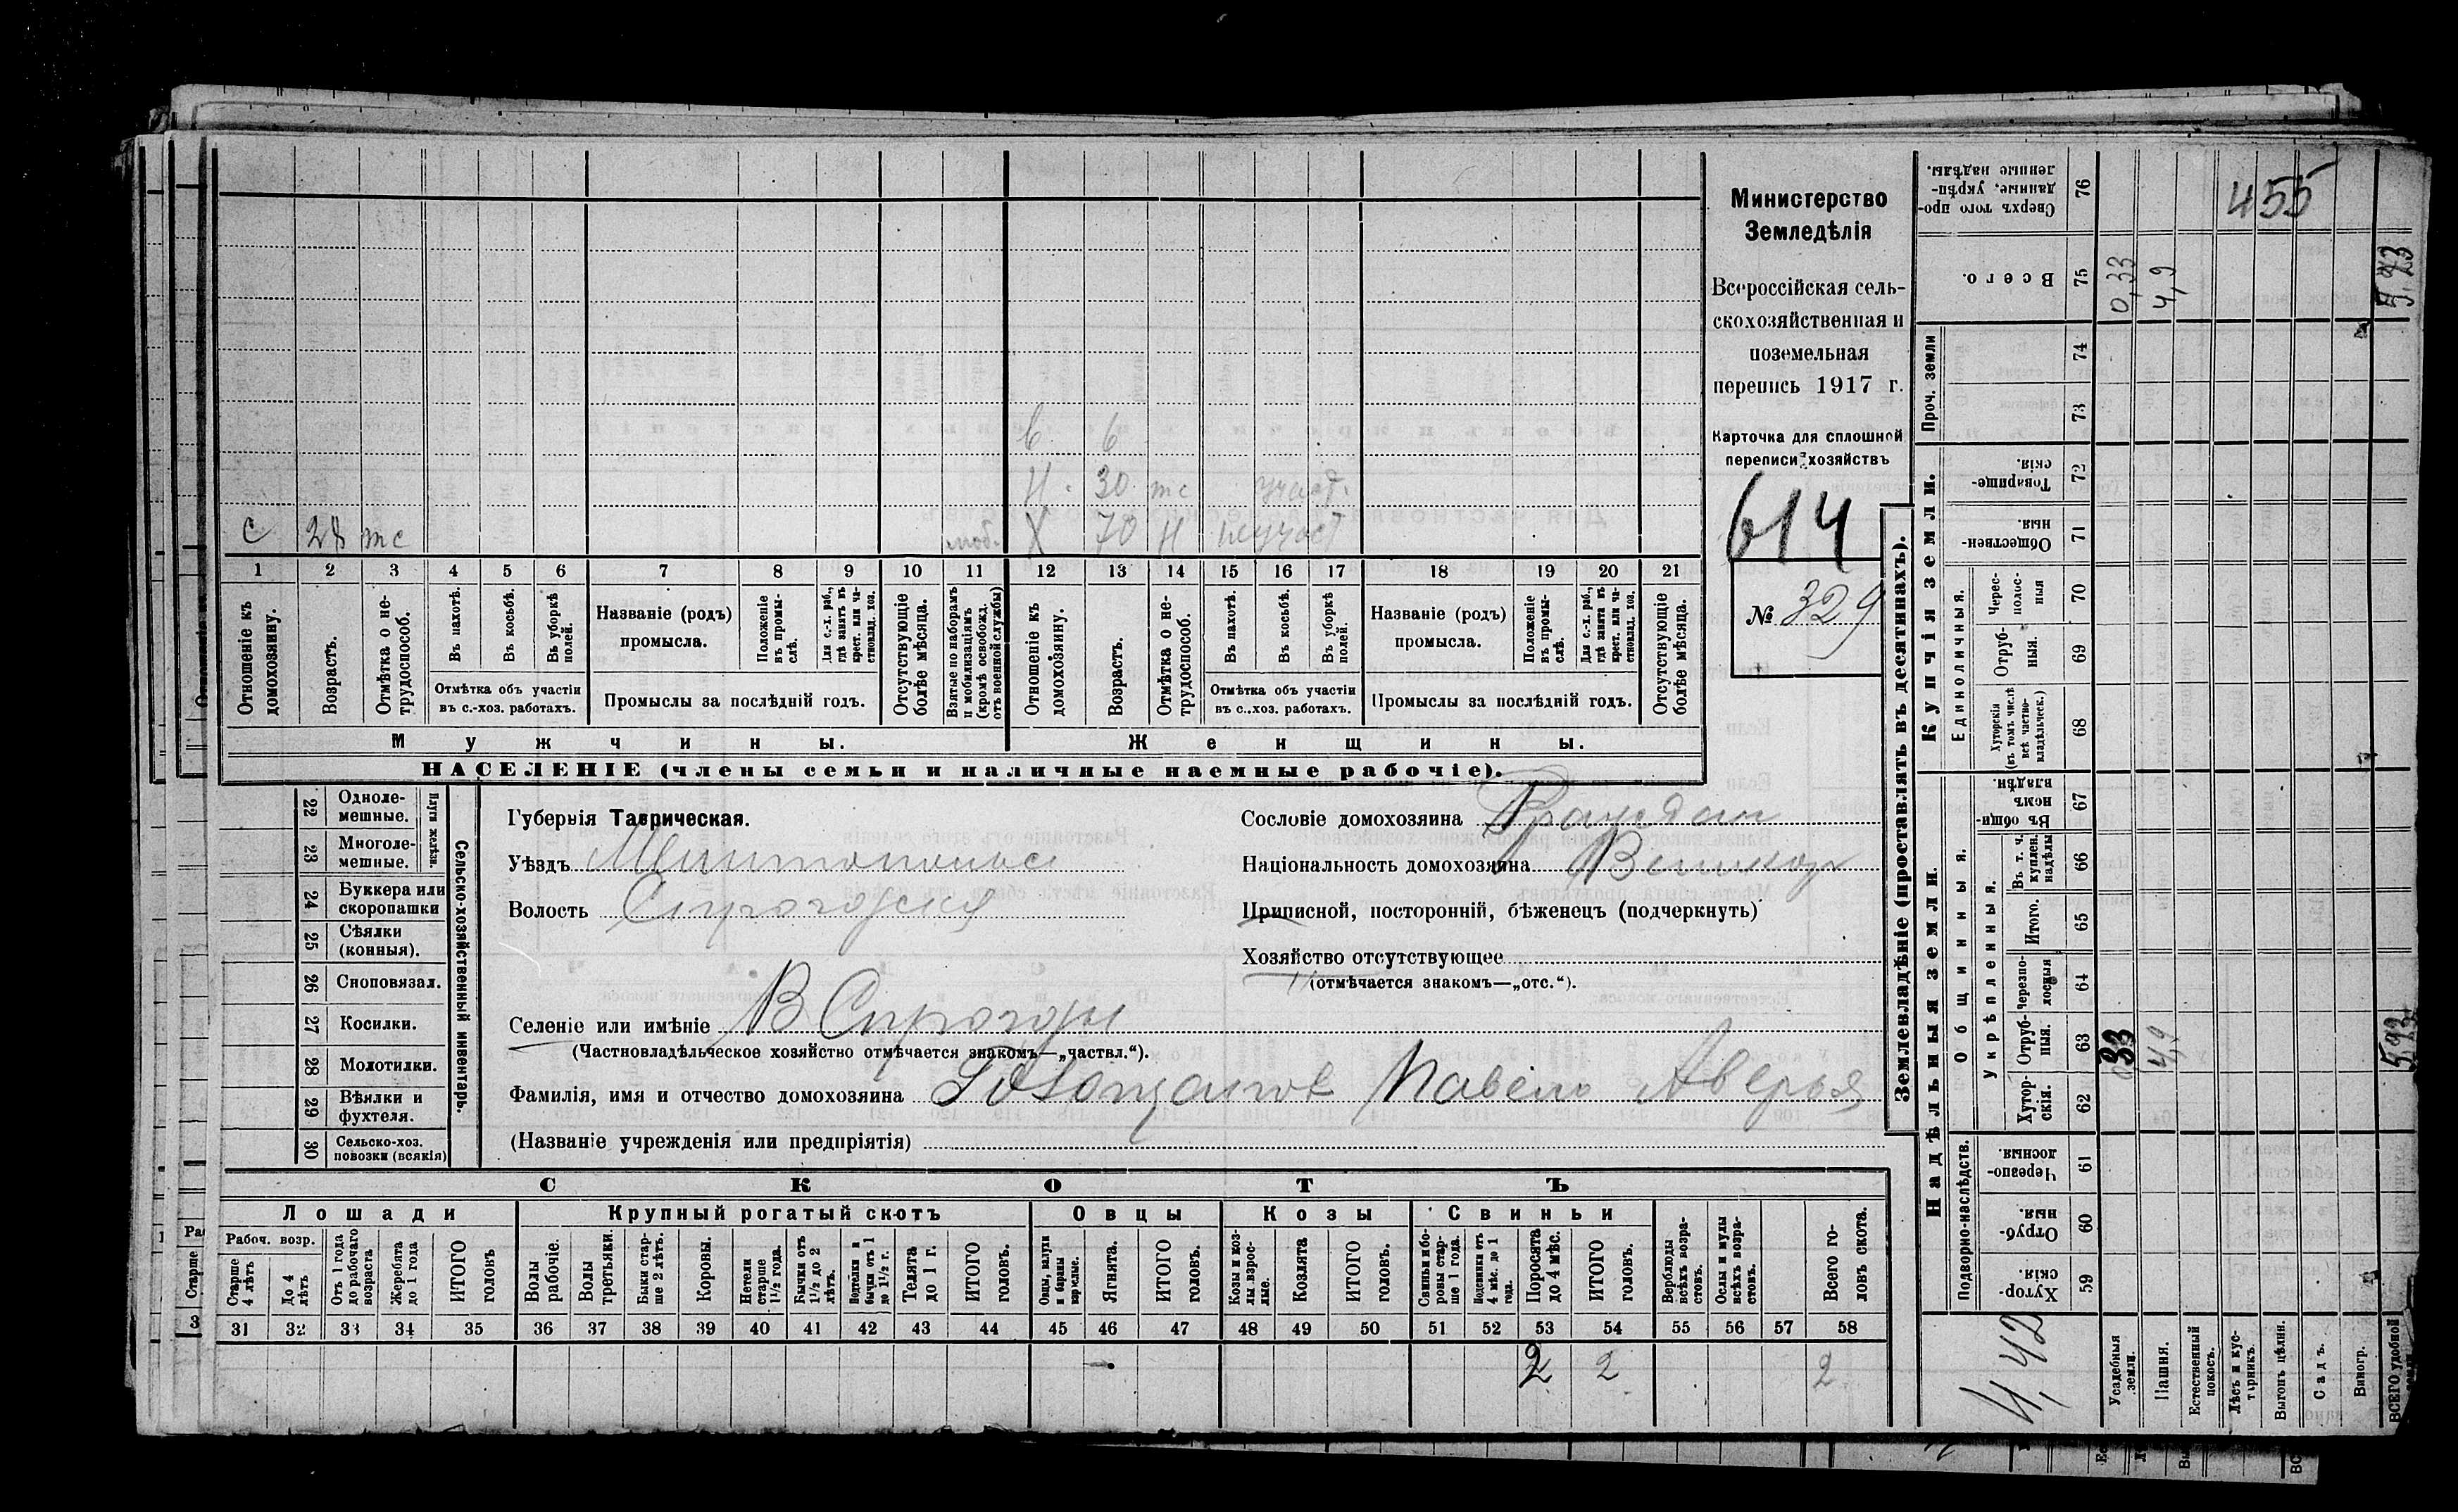 Министерство
Земледѣлія
Всероссійская сель-
скохозяйственная и
поземельная
перепись 1917 г.
Карточка для сплошной
переписи хозяйствъ
614
№ 329
в. 6
н. 30 тс участ.
с 28 тс моб. Х 70 н неучаст
1 2 3 4 5 6 7 8 9 10 11 12 13 14 15 16 17 18 19 20 21
Отношеніе къ домохозяину.
Возрастъ.
Отмѣтка о не-трудоспособ.
Въ пахотѣ.
Въ косьбѣ.
Въ уборкѣ полей.
Отмѣтка объ участіи
въ с.-хоз. работахъ.
Названіе (родъ)
промысла.
Положеніе въ промы-слѣ.
Для с.-х. раб., гдѣ занятъ въ крест. или ча-стновлад. хоз.
Промыслы за послѣдній годъ.
Отсутствующіе болѣе мѣсяца.
Взятые по наборамъ и мобилизаціямъ (кромѣ освобожд. отъ военной службы)
Отношеніе къ домохозяину.
Возрастъ.
Отмѣтка о не-трудоспособ.
Въ пахотѣ.
Въ косьбѣ.
Въ уборкѣ полей.
Отмѣтка объ участіи
въ с.-хоз. работахъ.
Названіе (родъ)
промысла.
Положеніе въ промы-слѣ.
Для с.-х. раб., гдѣ занята въ крест. или ча-стновлад. хоз.
Промыслы за послѣдній годъ.
Отсутствующіе болѣе мѣсяца.
Мужчины. Женщины.
НАСЕЛЕНІЕ (члены семьи и наличные наемные рабочіе).
22 Одноле-мешные.
23 Многоле-мешные.
Плуги желѣзн.
24 Буккера или скоропашки
25 Сѣялки (конныя).
26 Сноповязал.
27 Косилки.
28 Молотилки.
29 Вѣялки и фухтеля.
30 Сельско-хоз. повозки (всякія)
Сельско-хозяйственный инвентарь.
Губернія Таврическая.
Уѣздъ Мелитополь
Волость Сирогозская
Селеніе или имѣніе В Сирогозы
(Частновладѣльческое хозяйство отмѣчается знакомъ—„частвл.“).
Фамилія, имя и отчество домохозяина Павелъ Аверья
(Названіе учрежденія или предпріятія)
Сословіе домохозяина Граждан
Національность домохозяина Великор
Приписной, посторонній, бѣженецъ (подчеркнуть)
Хозяйство отсутствующее
(отмѣчается знакомъ—„отс.“).
СКОТЪ
Лошади Крупный рогатый скотъ Овцы Козы Свиньи
Рабоч. возр.
Старше 4 лѣтъ
До 4 лѣтъ
Отъ 1 года до рабочаго возраста
Жеребята до 1 года
ИТОГО головъ
Волы рабочіе.
Волы третьяки.
Быки стар-ше 2 лѣтъ.
Коровы.
Нетели старше 1½ года.
Бычки отъ 1½ до 2 лѣтъ.
Подтелки и бычки отъ 1 до 1½ г.
Телята до 1 г.
ИТОГО головъ.
Овцы, валухи и бараны взрослые.
Ягнята.
ИТОГО головъ.
Козы и коз-лы взрос-лые.
Козлята
ИТОГО головъ.
Свиньи и бо-ровы стар-ше 1 года.
Подсвинки отъ 4 мѣс. до 1 года.
Поросята до 4 мѣс.
ИТОГО головъ.
Верблюды всѣхъ возра-стовъ.
Ослы и мулы всѣхъ возра-стовъ.
Всего го-ловъ скота.
31 32 33 34 35 36 37 38 39 40 41 42 43 44 45 46 47 48 49 50 51 52 53 54 55 56 57 58
2 2 2
Землевладѣніе (проставлять въ десятинахъ).
Купчія земли.
Надѣльныя земли.
Проч. земли
Единоличныя.
Общинныя.
Укрѣпленныя.
Подворно-наслѣдств.
Сверхъ того про-данные, укрѣп-ленные надѣлы. 76
455
Всего. 75 0,33 4,9 5,23
74
73
Товарище-скія. 72
Обществен-ныя. 71
Черес-полос-ныя 70
Отруб-ныя. 69
Хуторскія (въ томъ числѣ всѣ частно-владѣльческ.) 68
Въ общин-номъ владѣн. 67
Въ т. ч. куплен. надѣлы 66
Итого. 65
Черезпо-лосныя 64
Отруб-ныя. 63 33 4,9
Хутор-скія. 62
Черезпо-лосныя. 61
Отруб-ныя. 60
Хутор-скія 59
4,42
Усадебныя земли.
Пашня.
Естественный покосъ.
Лѣсъ и кус-тарникъ.
Выгонъ цѣлин.
Садъ.
Виногр.
ВСЕГО удобной